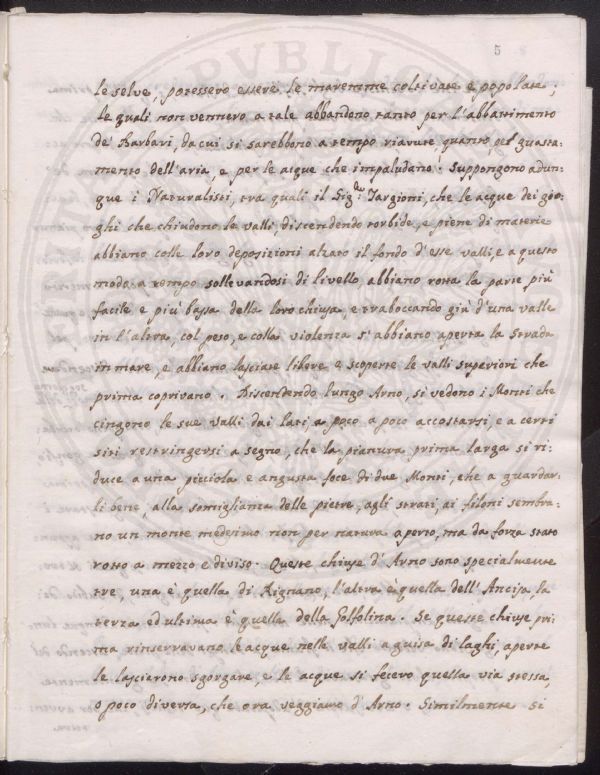 5
le selve, potessero essere le maremme coltivate e popolate,
le quali non vennero a tale abbandono tanto per l'abbattimento
de' Barbari, da cui si sarebbono a tempo riavute, quanto pel guasta-
mento dell'aria, e per le acque che impaludano. Suppongono adun-
que i Naturalisti, tra quali il Sig. Targioni, che le acque dei
ghi che chiudono le valli, discendendo torbide, e piene di materie
abbiano colle loro deposizioni alzato il fondo d'esse valli, e a questo
modo a tempo sollevandosi di livello abbiano rotta la parte più
facile e più bassa della loro chiusa, e traboccando già d'una valle
in l'altra, col peso, e colla violenza s'abbiano aperta la strada
in mare, e abbiano lasciate libere e scoperte le valli superiori che
prima coprivano. Discendendo lungo Arno, si vedono i Monti che
cingono le sue valli dai lati, a poco a poco accostarsi, e a certi
siti restringersi a segno, che la pianura prima larga si ri-
duce a una picciola e angusta foce di due Monti, che a guardar-
li bene, alla somiglianza delle pietre, agli strati, ai filoni sembra-
no un monte medesimo non per natura aperto, ma da forza stato
rotto a mezzo e diviso. Queste chiuse d'Arno sono specialmente
tre, una è quella di Rignano, l'altra è quella dell'Ancisa la
terza ed ultima è quella della Golfolina. Se queste chiuse pri-
ma rinserravano le acque nelle valli a guisa di laghi, aperte
le lasciarono sgorgare, e le acque si fecero quella via stessa,
o poco diversa, che ora veggiamo d'Arno. Similmente si